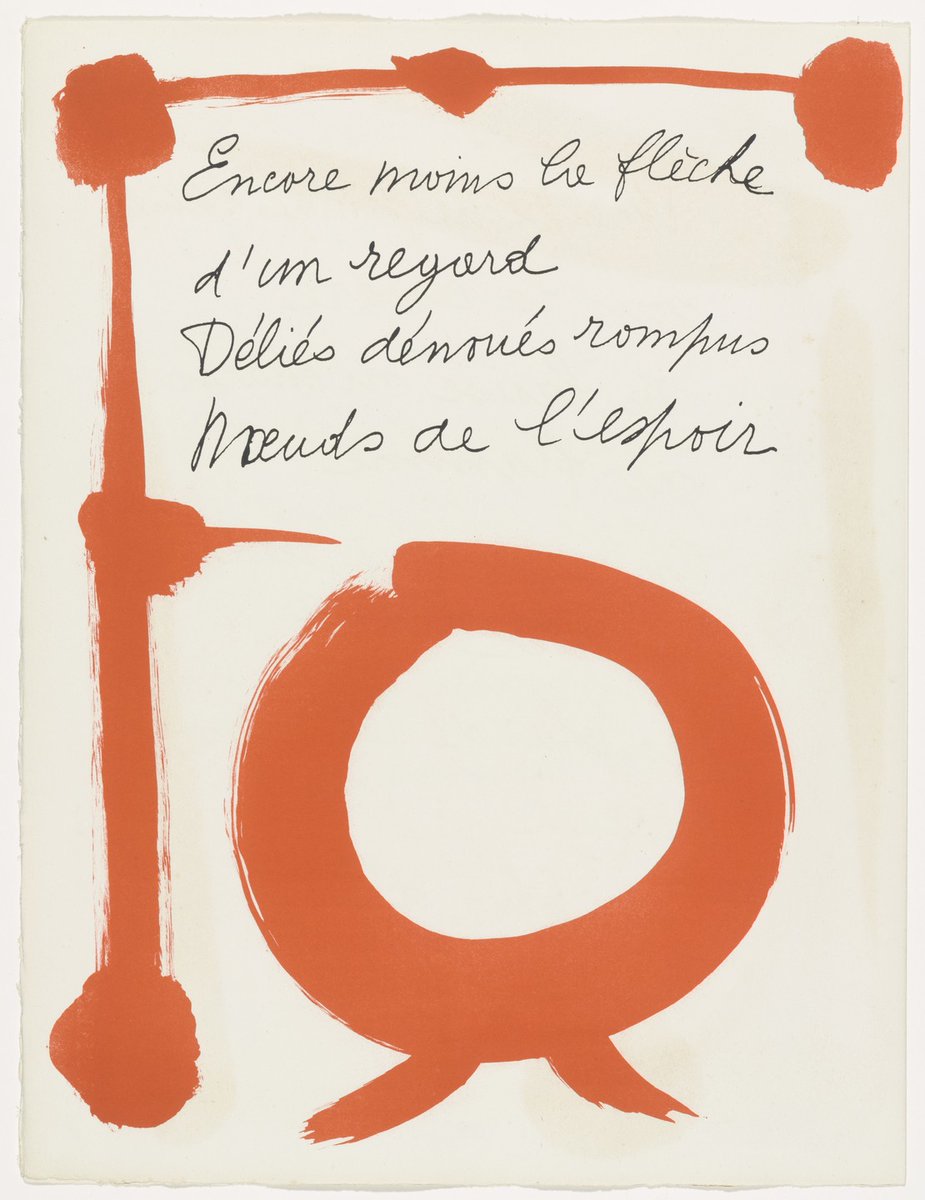 Encore moins la flèche
d'un regard
Déliés dénoués rompus
Nœuds de l'espoir